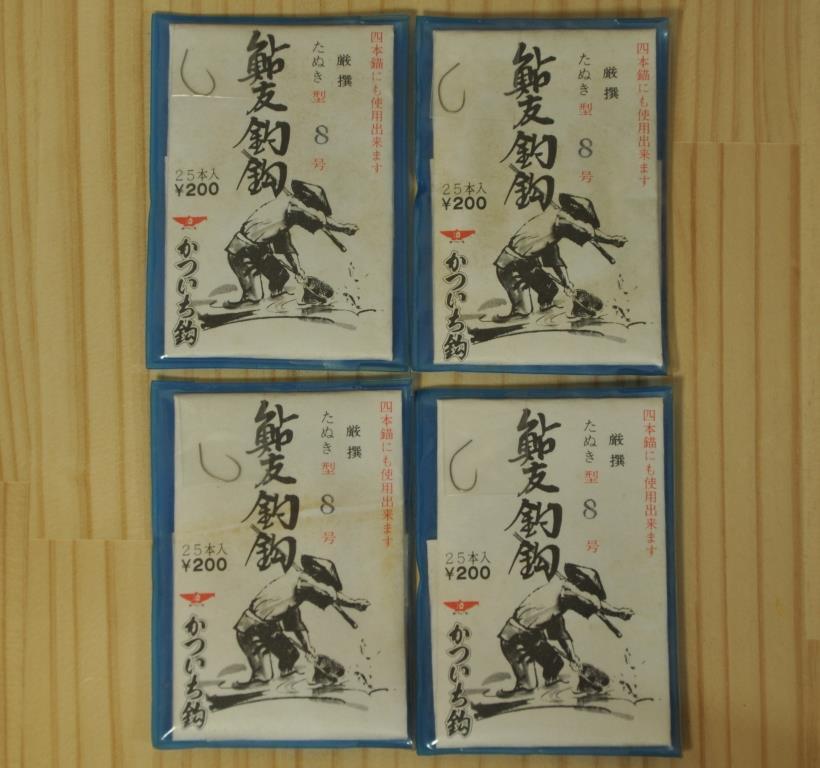 四本錨にも使用出来ます
厳撰
たぬき型 8 号
鮎友釣鈎
25本入
¥200
かついち鈎
四本錨にも使用出来ます
厳撰
たぬき型 8 号
鮎友釣鈎
25本入
¥200
かついち鈎
四本錨にも使用出来ます
厳撰
たぬき型 8 号
鮎友釣鈎
25本入
¥200
かついち鈎
四本錨にも使用出来ます
厳撰
たぬき型 8 号
鮎友釣鈎
25本入
¥200
かついち鈎